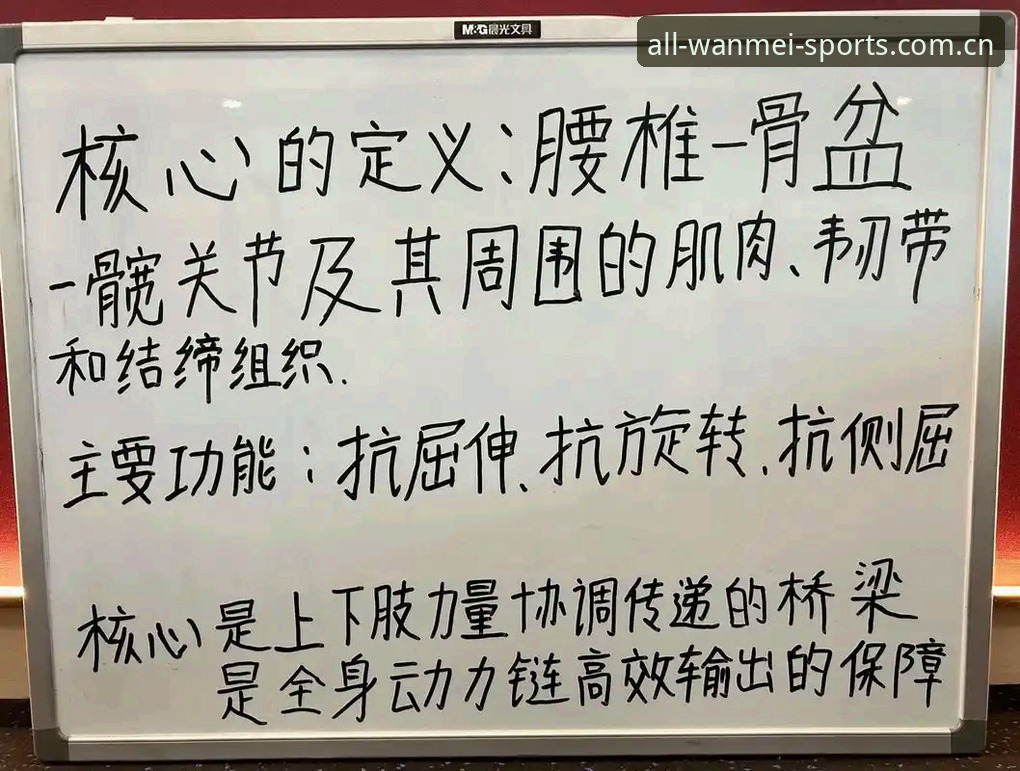 M&G晨光文具
all-wanmei-sports.com.cn
核心的定义:腰椎-骨盆
-髋关节及其周围的肌肉、韧带
和结缔组织.
主要功能:抗屈伸、抗旋转、抗侧屈
核心是上下肢力量协调传递的桥梁
是全身动力链高效输出的保障